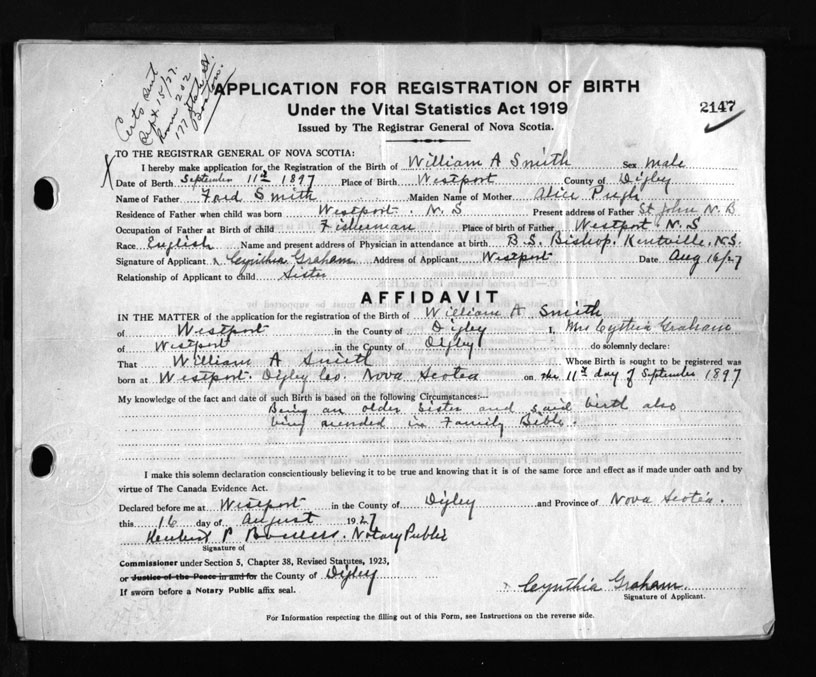 Certs sent
Sept 15/27.
Room 202
177 State St.
Boston.
APPLICATION FOR REGISTRATION OF BIRTH
Under the Vital Statistics Act 1919
2147
Issued by The Registrar General of Nova Scotia.
TO THE REGISTRAR GENERAL OF NOVA SCOTIA:
I hereby make application for the Registration of the Birth of William A Smith Sex Male
Date of Berth September 11th 1897 Place of Birth Westport County of Digby
Name of Father Ford Smith Maiden Name of Mother Alice Pugh
Residence of Father when child was born Westport. N.S Present address of Father St John N.B
Occupation of Father at Birth of child Fisherman Place of birth of Father Westport N.S
Race English Name and present address of Physician in attendance at birth B.S. Bishop, Kentville, N.S.
Signature of Applicant x Cynthia Graham Address of Applicant Westport Date Aug 16/27
Relationship of Applicant to child Sister
AFFIDAVIT
IN THE MATTER of the application for the registration of the Birth of William A Smith
of Westport in the County of Digby I, Mrs Cynthia Graham
of Westport in the County of Digby do solemnly declare:
That William A Smith Whose Birth is sought to be registered was
born at Westport. Digby Co. Nova Scotia on the 11th day of September 1897
My knowledge of the fact and date of such Birth is based on the following Circumstances:--
Being an older sister and said birth also
being in Family Bible.
I make this solemn declaration conscientiously believing it to be true and knowing that it is of the same force and effect as if made under oath and by
virtue of The Canada Evidence Act.
Declared before me at Westport in the County of Digby and Province of Nova Scotia.
this 16 day of August 1927
P Notary Public
Signature of
Commissioner under Section 5, Chapter 38, Revised Statutes, 1923,
or Justice of the Peace in and for the County of Digby
If sworn before a Notary Public affix seal.
x Cynthia Graham
Signature of Applicant.
For Information respecting the filling out of this Form, see Instructions on the reverse side.